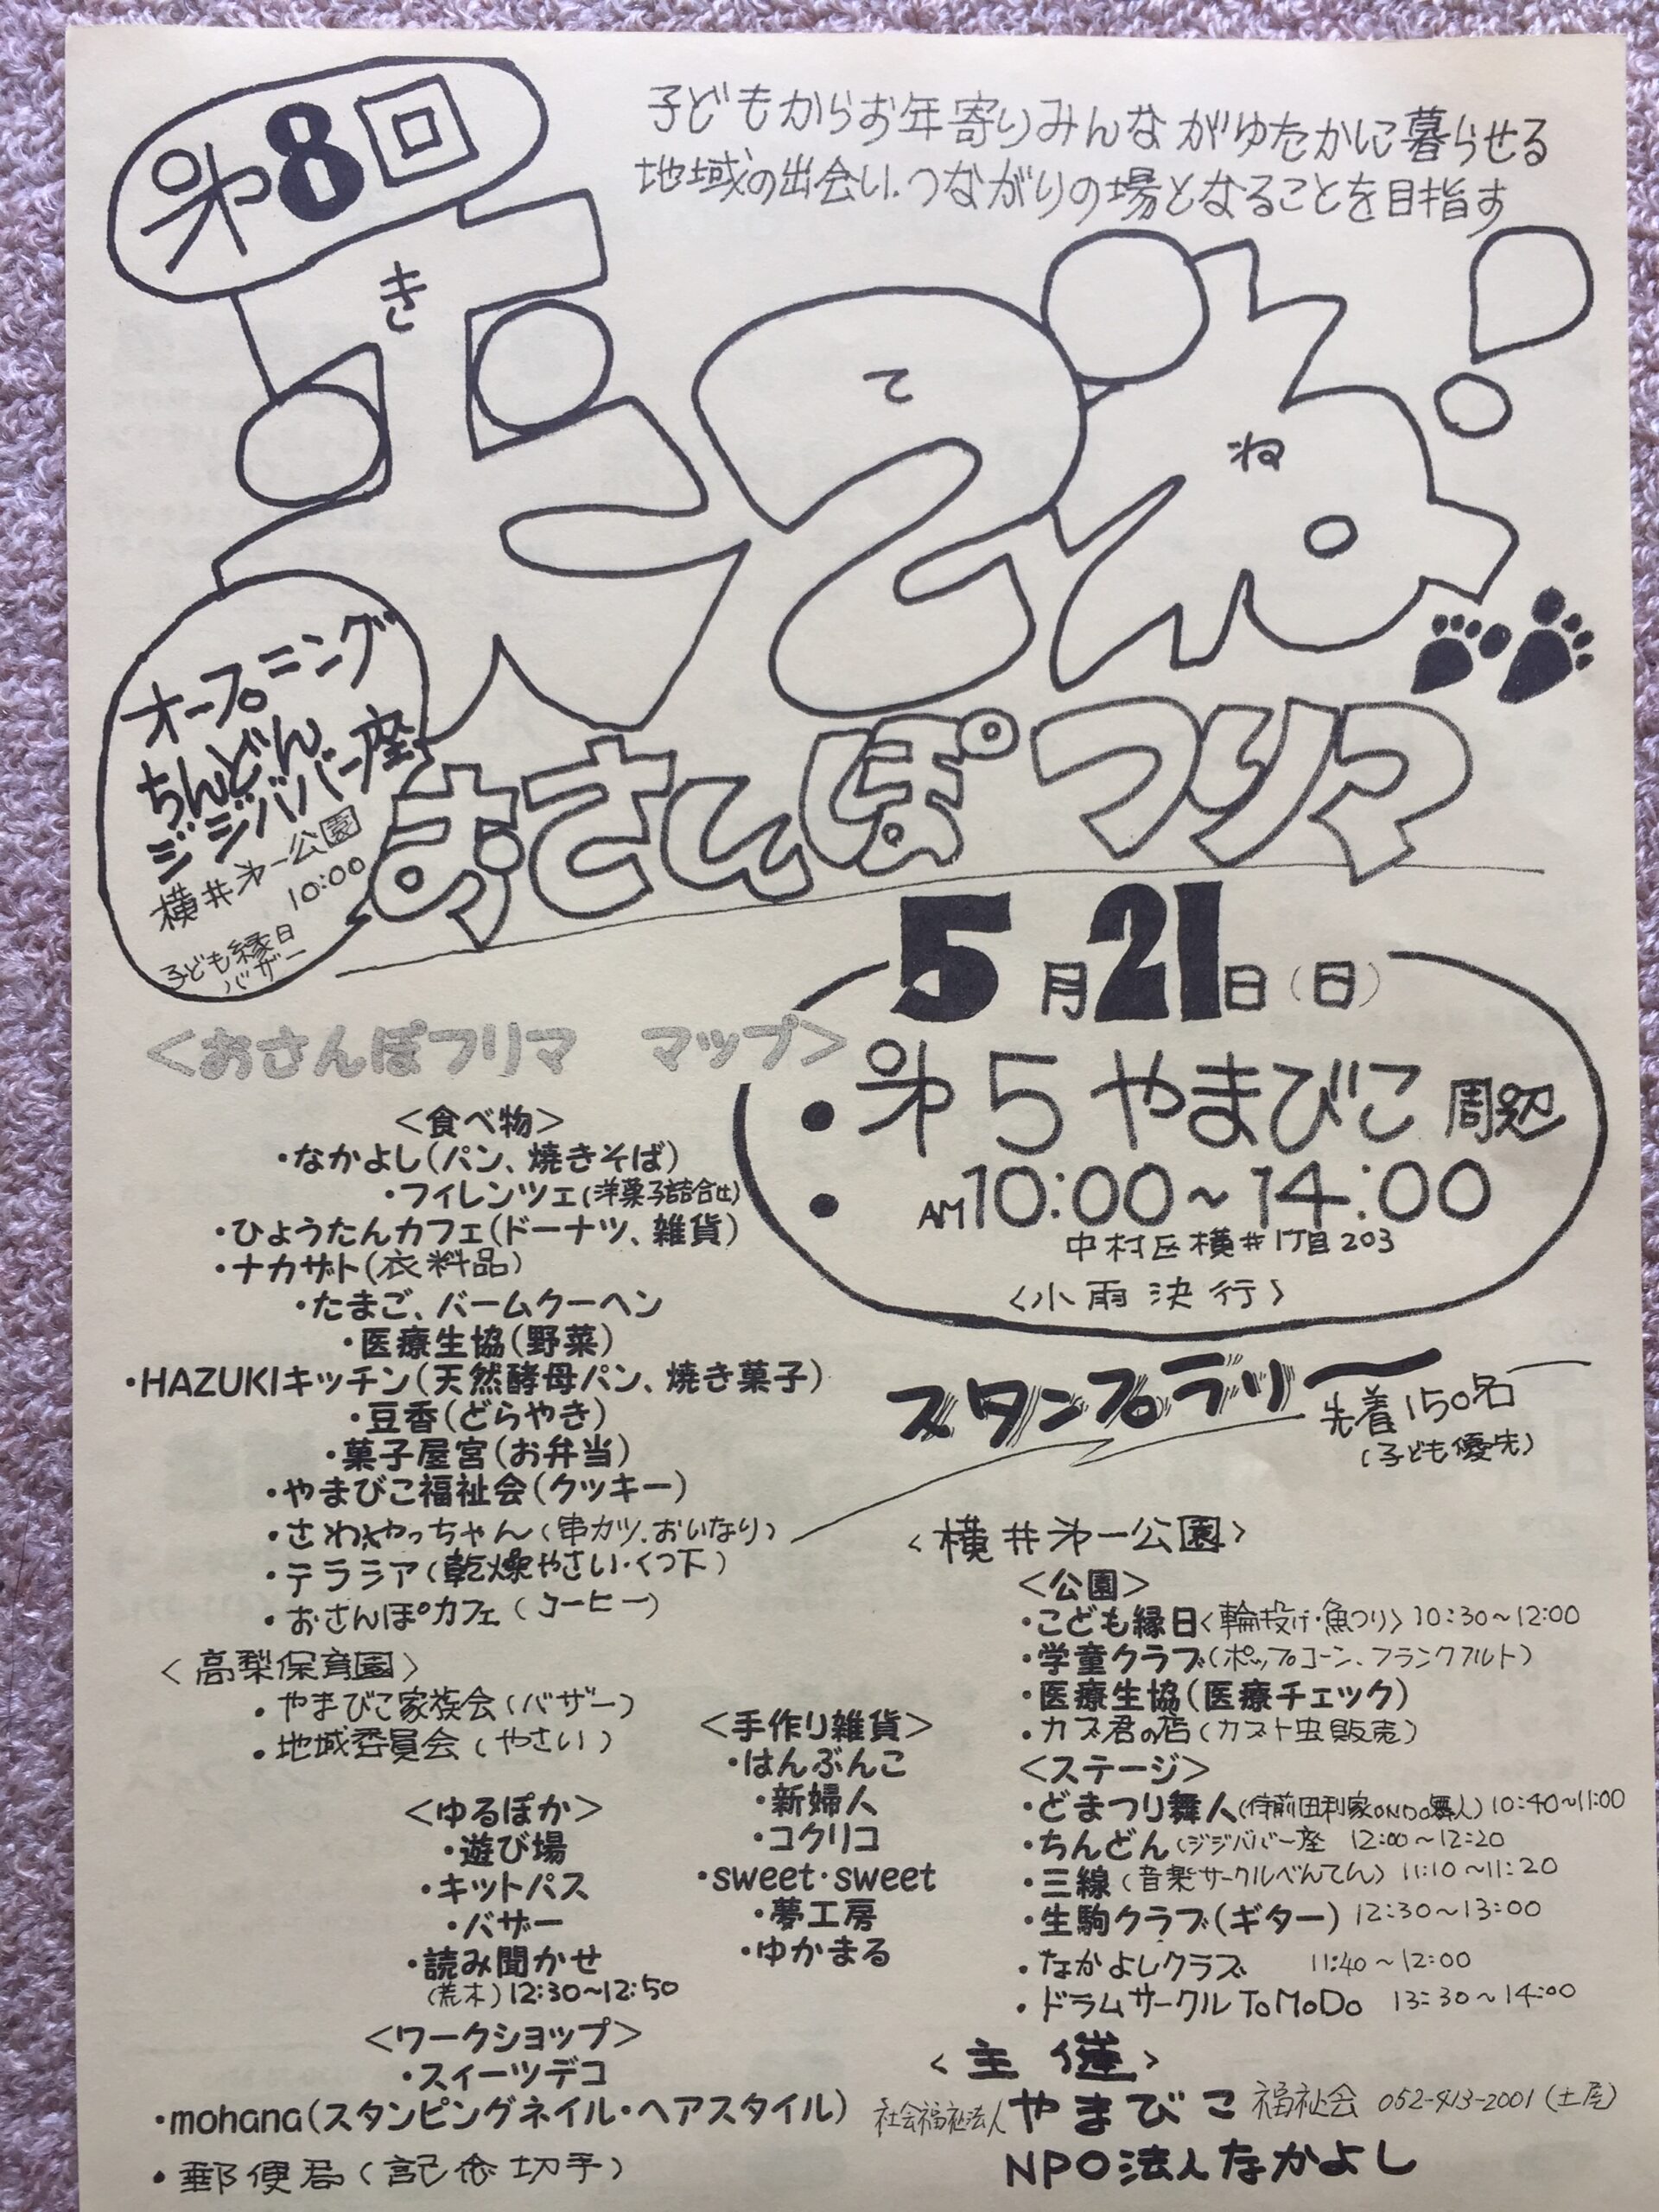 第8回
子どもからお年寄りみんながゆたかに暮らせる
地域の出会い、つながりの場となることを目指す
きてね!
き
て
ね
おさんぽフリマ
オープニング
ちんどん
ジジババー座
横井第一公園
10:00
子ども縁日
バザー
5月21日(日)
・第5やまびこ周辺
・AM10:00~14:00
中村区横井1丁目203
<小雨決行>
<おさんぽフリマ マップ>
<食べ物>
・なかよし(パン、焼きそば)
・フィレンツェ(洋菓子詰合せ)
・ひょうたんカフェ(ドーナツ、雑貨)
・ナカザト(衣料品)
・たまご、バームクーヘン
・医療生協(野菜)
・HAZUKIキッチン(天然酵母パン、焼き菓子)
・豆香(どらやき)
・菓子屋宮(お弁当)
・やまびこ福祉会(クッキー)
・さわやっちゃん(串カツ、おいなり)
・テラシア(乾燥やさい・くつ下)
・おさんぽカフェ(コーヒー)
<高梨保育園>
・やまびこ家族会(バザー)
・地域委員会(やさい)
<ゆるぽか>
・遊び場
・キットパス
・バザー
・読み聞かせ
(荒木)12:30~12:50
<ワークショップ>
・スィーツデコ
・mohana(スタンピングネイル・ヘアスタイル)
・郵便局(記念切手)
<手作り雑貨>
・はんぶんこ
・新婦人
・コクリコ
・sweet・sweet
・夢工房
・ゆかまる
スタンプラリー
先着150名
(子ども優先)
<横井第一公園>
<公園>
・こども縁日<輪投げ・魚つり> 10:30~12:00
・学童クラブ(ポップコーン、フランクフルト)
・医療生協(医療チェック)
・カブ君の店(カブト虫販売)
<ステージ>
・どまつり舞人(侍前田利家ONDO舞人) 10:40~11:00
・ちんどん(ジジババー座 12:00~12:20
・三線(音楽サークルべんてん) 11:10~11:20
・生駒クラブ(ギター) 12:30~13:00
・なかよしクラブ 11:40~12:00
・ドラムサークルToMoDo 13:30~14:00
<主催>
社会福祉法人やまびこ福祉会 052-413-2001(土尾)
NPO法人なかよし